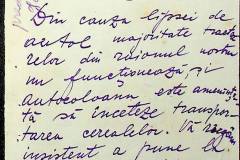 Din cauza lipsei de
acetol majoritate tracto-
relor din raionul nostru
nu funcționează, și
autocoloana este amenința-
tă să inceteze transpor-
tarea cerealelor. Vă rugăm
insistent a pune la